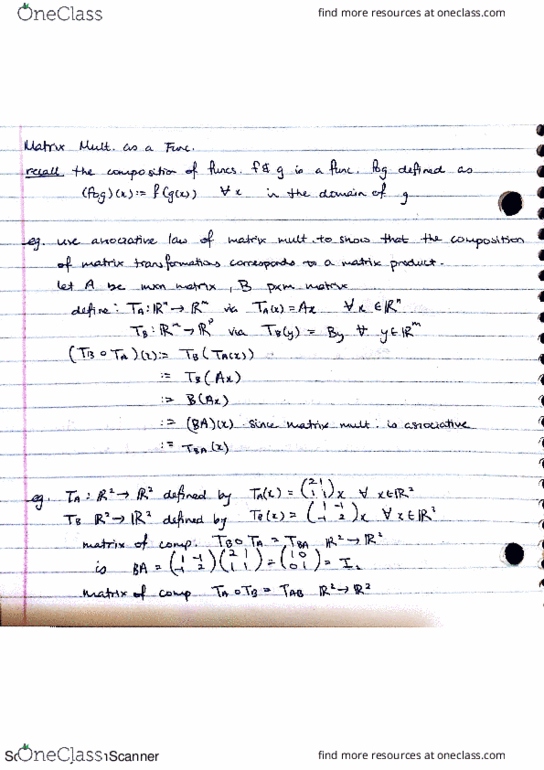 OneClass find more resources at oneclass.com
Matrix Mult. as a Func.
recall the composition of funcs. f & g is a func. fog defined as
(fog)(x) := f(g(x)) ∀x in the domain of g
eg. use associative law of matrix mult. to show that the composition
of matrix transformations corresponds to a matrix product.
let A be mxn matrix, B pxm matrix
define: TA: ℝⁿ → ℝᵐ via TA(x) = Ax ∀ x ∈ ℝⁿ
TB: ℝᵐ → ℝᵖ via TB(y) = By ∀ y ∈ ℝᵐ
(TB ∘ TA)(x) := TB(TA(x))
:= TB(Ax)
:= B(Ax)
:= (BA)(x) since matrix mult. is associative
:= TBA(x)
eg. TA: ℝ² → ℝ² defined by TA(x) = (2 1 1 1) x ∀ x ∈ ℝ²
TB ℝ² → ℝ² defined by TB(x) = (1 -1 -1 2) x ∀ x ∈ ℝ²
matrix of comp. TB ∘ TA = TBA ℝ² → ℝ²
is BA = (1 -1 -1 2)(2 1 1 1) = (1 0 0 1) = I₂
matrix of comp TA ∘ TB = TAB ℝ² → ℝ²
OneClass Scanner find more resources at oneclass.com